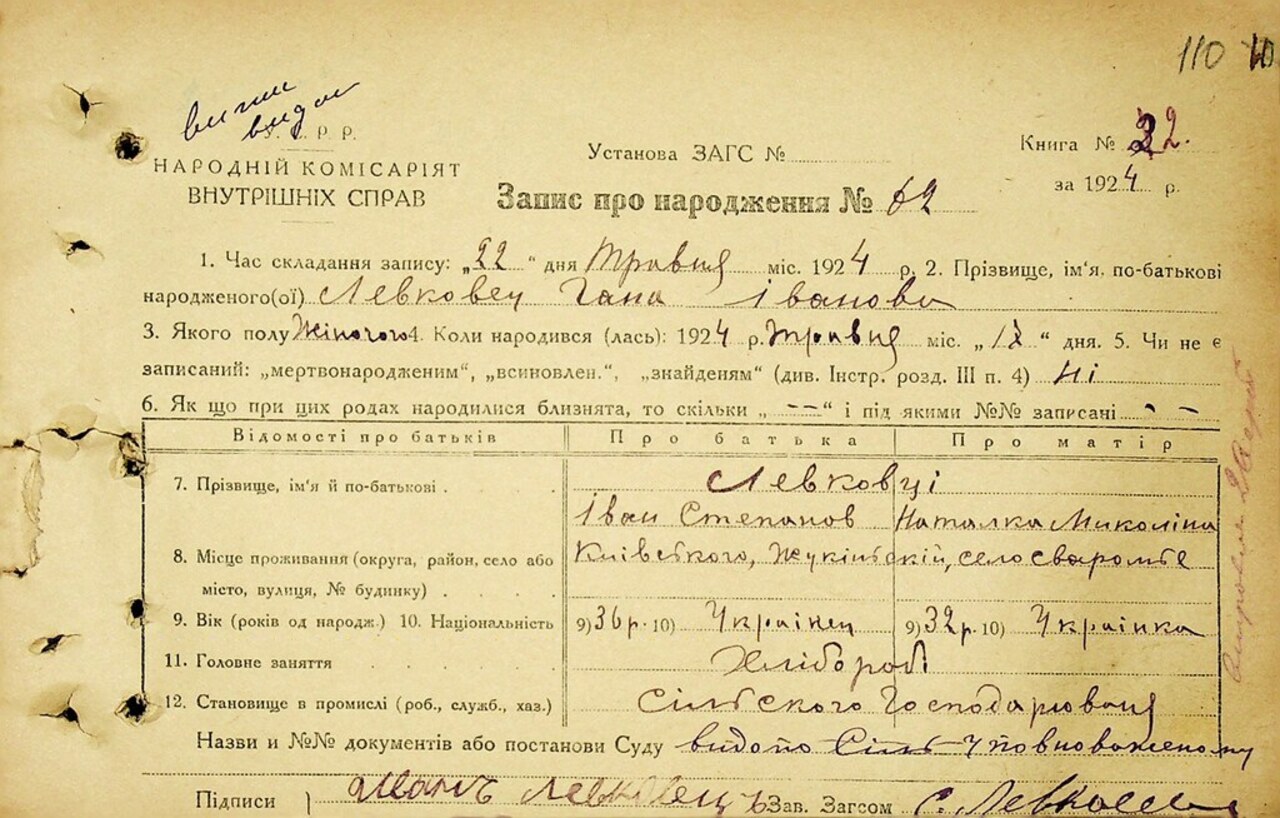 110
випис
видан
У. . Р. Р.
НАРОДНІЙ КОМІСАРІЯТ
ВНУТРІШНІХ СПРАВ
Установа ЗАГС №
Книга № 32.
за 1924 р.
Запис про народження № 62
1. Час складання запису: „22" дня Травня міс. 1924 р. 2. Прізвище, ім'я, по-батькові
народженого(ої) Левковец Гана Іванова
3. Якого полу Жіночого 4. Коли народився (лась): 1924 р. Травня міс. „17" дня. 5. Чи не є
записаний: „мертвонародженим", „всиновлен.", „знайденям" (див. Інстр. розд. III п. 4) Ні
6. Як що при цих родах народилися близнята, то скільки „ -- " і під якими №№ записані - -
Відомості про батьків Про батька Про матір
7. Прізвище, ім'я й по-батькові Левковці
Іван Степанов Наталка Миколіна
8. Місце проживання (округа, район, село або Київського, Жукінській, село Сваромьє
місто, вулиця, № будинку)
9. Вік (років од народж.) 10. Національність 9) 36 р. 10) Українец 9) 32 р. 10) Українка
11. Головне заняття Хлібороб
12. Становище в промислі (роб., служб., хаз.) Сільского Господарювання
Назви и №№ документів або постанови Суду видано Сіль Уповноваженому
Підписи Иванъ Левковецъ Зав. Загсом С. Левковець